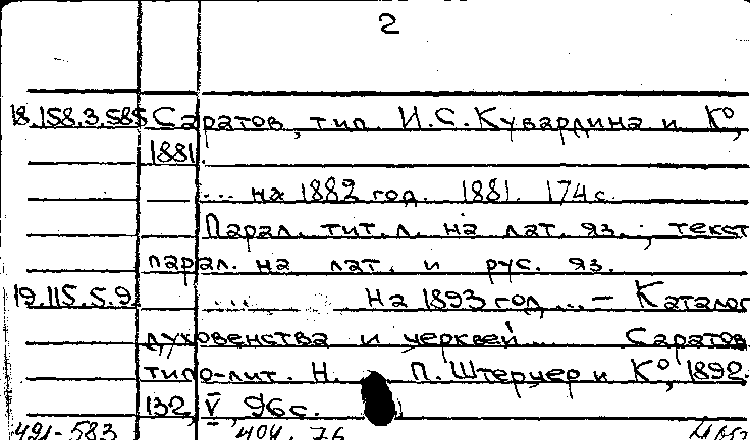 2
18.158.3.585 Саратов, тип И.С. Кувардина и К°,
1881.
... на 1882 год. 1881. 174 с.
Парал. тит. л. на лат. яз.; текст
парал. на лат. и рус. яз.
19.115.5.9 ... На 1893 год ... – Каталог
духовенства и церквей ... Саратов
типо-лит. Н. П. Штерцер и К°, 1892.
132, V, 96 с.
491-583 404. 76